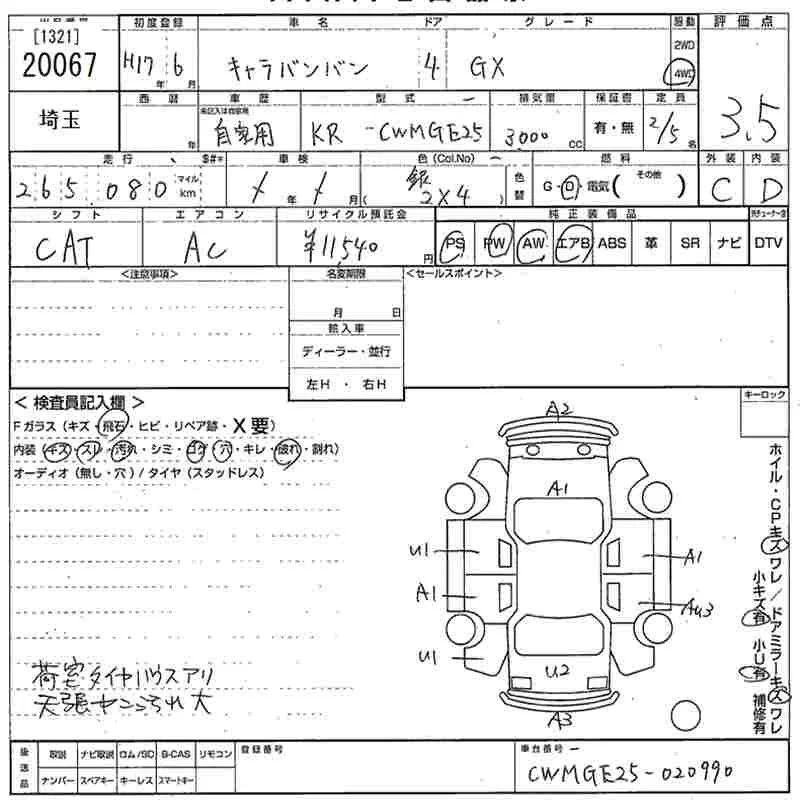 [1321]
20067
初度登録
H17 年 6 月
車名
キャラバンバン
ドア
4
グレード
GX
駆動
2WD
4WD
評価点
3.5
埼玉
西暦
年
車歴
未記入は自家用
自家用
型式
KR -CWMGE25
排気量
3,000 CC
保証書
有・無
定員
2/5 名
走行
265,080
マイル
km
$#*
車検
/ 年 / 月
色(Col.No)
銀
( 2X4 )
色替
燃料
G・D・電気( その他 )
外装
C
内装
D
シフト
CAT
エアコン
AC
リサイクル預託金
¥11,540 円
純正装備品
PS PW AW エアB ABS 革 SR ナビ
DTV
<注意事項>
名変期限
月 日
輸入車
ディーラー・並行
左H ・ 右H
<セールスポイント>
<検査員記入欄>
Fガラス (キズ・飛石・ヒビ・リペア跡・X要)
内装 (キズ・スレ・汚れ・シミ・コゲ・穴・キレ・破れ・割れ)
オーディオ (無し・穴) / タイヤ (スタッドレス)
キーロック
A2
A1
U1
A1
A1
AU3
U1
U2
A3
ホイル・CPキズワレ/ドアミラーキズワレ
小キズ有 小U有 補修有
荷室タイヤハウスアリ
天張ヤニよごれ大
後送品
取説 ナビ取説 ロム/SD B-CAS リモコン
ナンバー スペアキー キーレス スマートキー
登録番号
車台番号
CWMGE25-020990